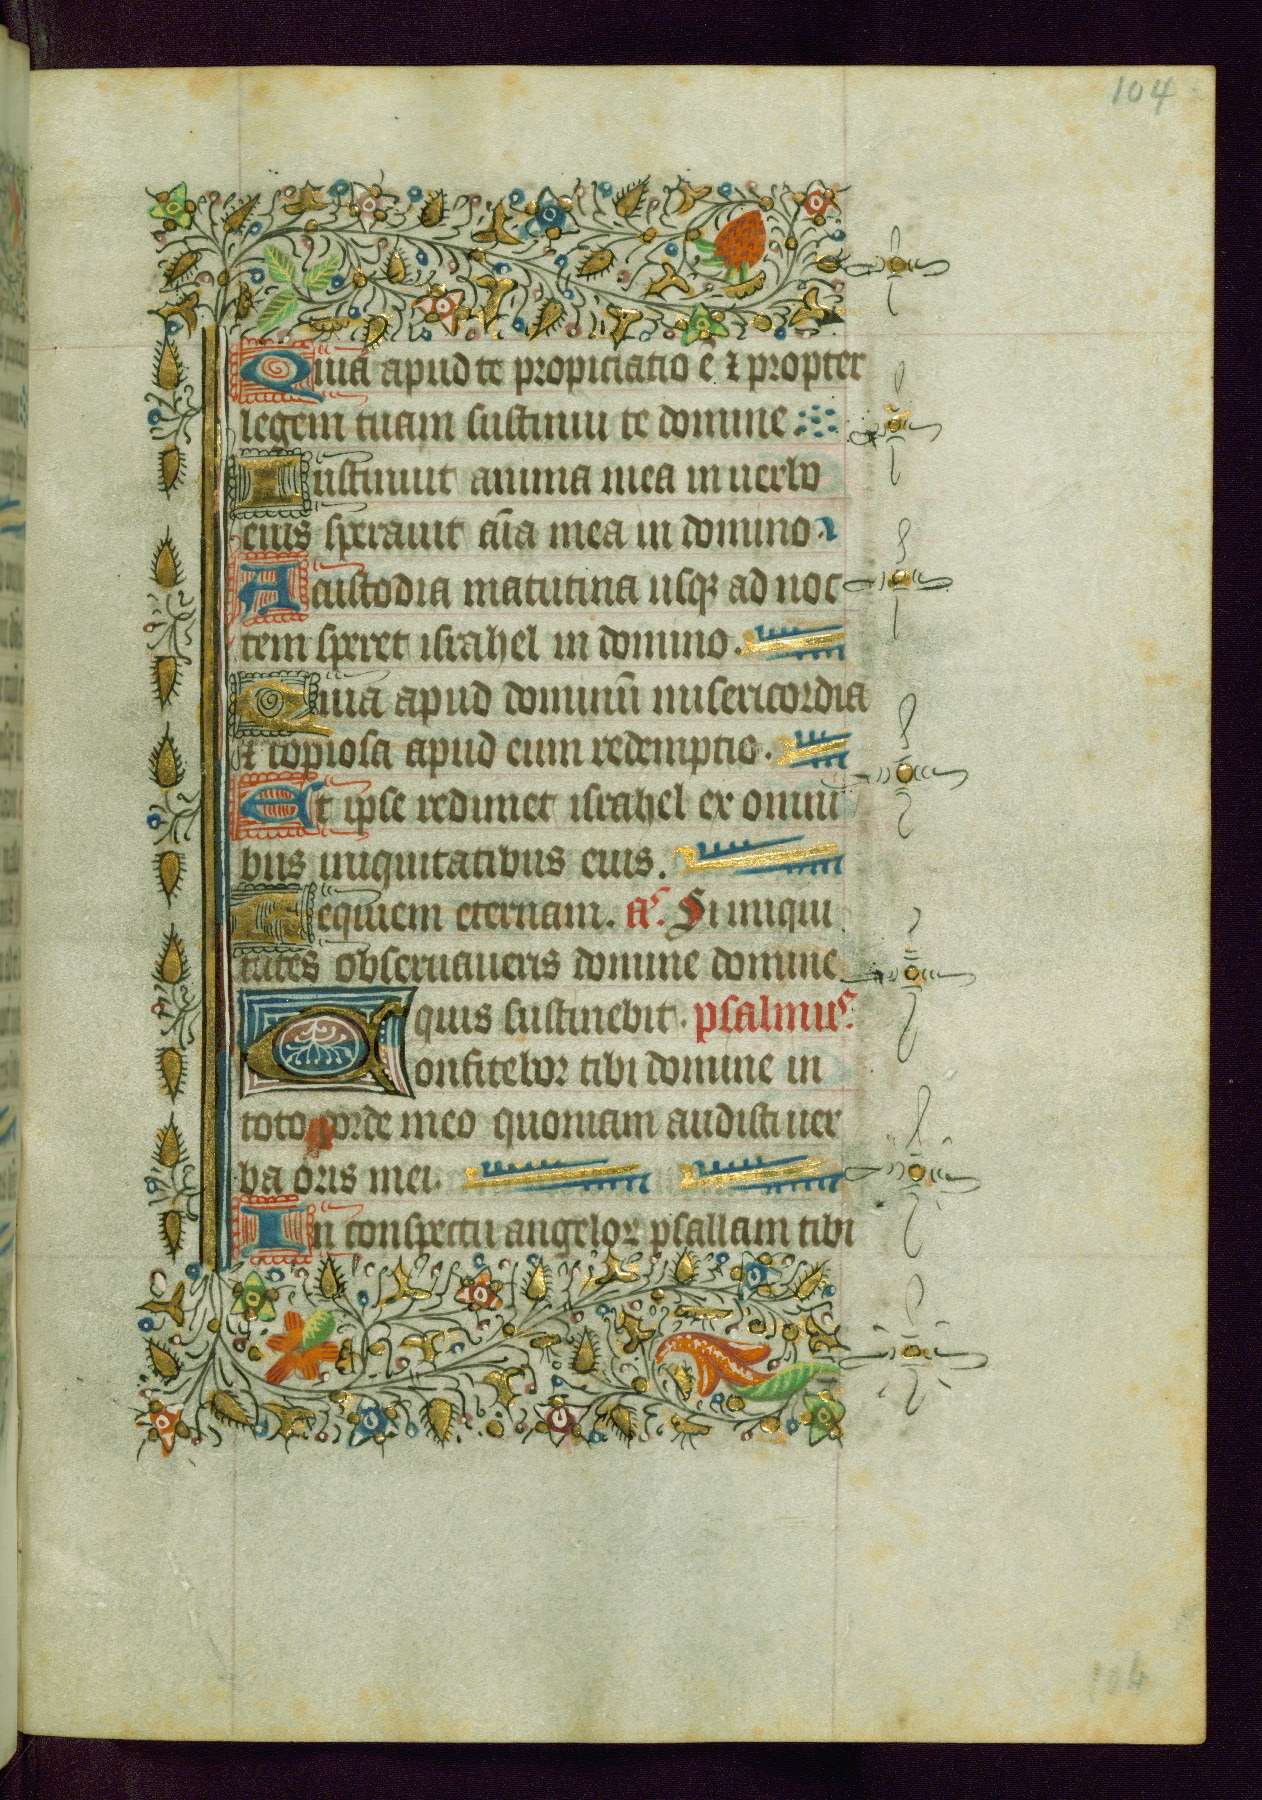 104
Quia apud te propiciatio ē ⁊ propter
legem tuam sustinui te domine
Iustinuit anima mea in uerbo
eius sperauit aīa mea in domino.
A custodia matutina usqꝫ ad noc
tem speret israhel in domino.
Quia apud dominū misericordia
⁊ copiosa apud eum redemptio.
Et ipse redimet israhel ex omni
bus iniquitatibus eius.
Requiem eternam. a͛. Si iniqui
tates obseruaueris domine domine
quis sustinebit. psalmus.
Confitebor tibi domine in
toto corde meo quoniam audisti uer
ba oris mei.
In conspectu angeloꝝ psallam tibi
104